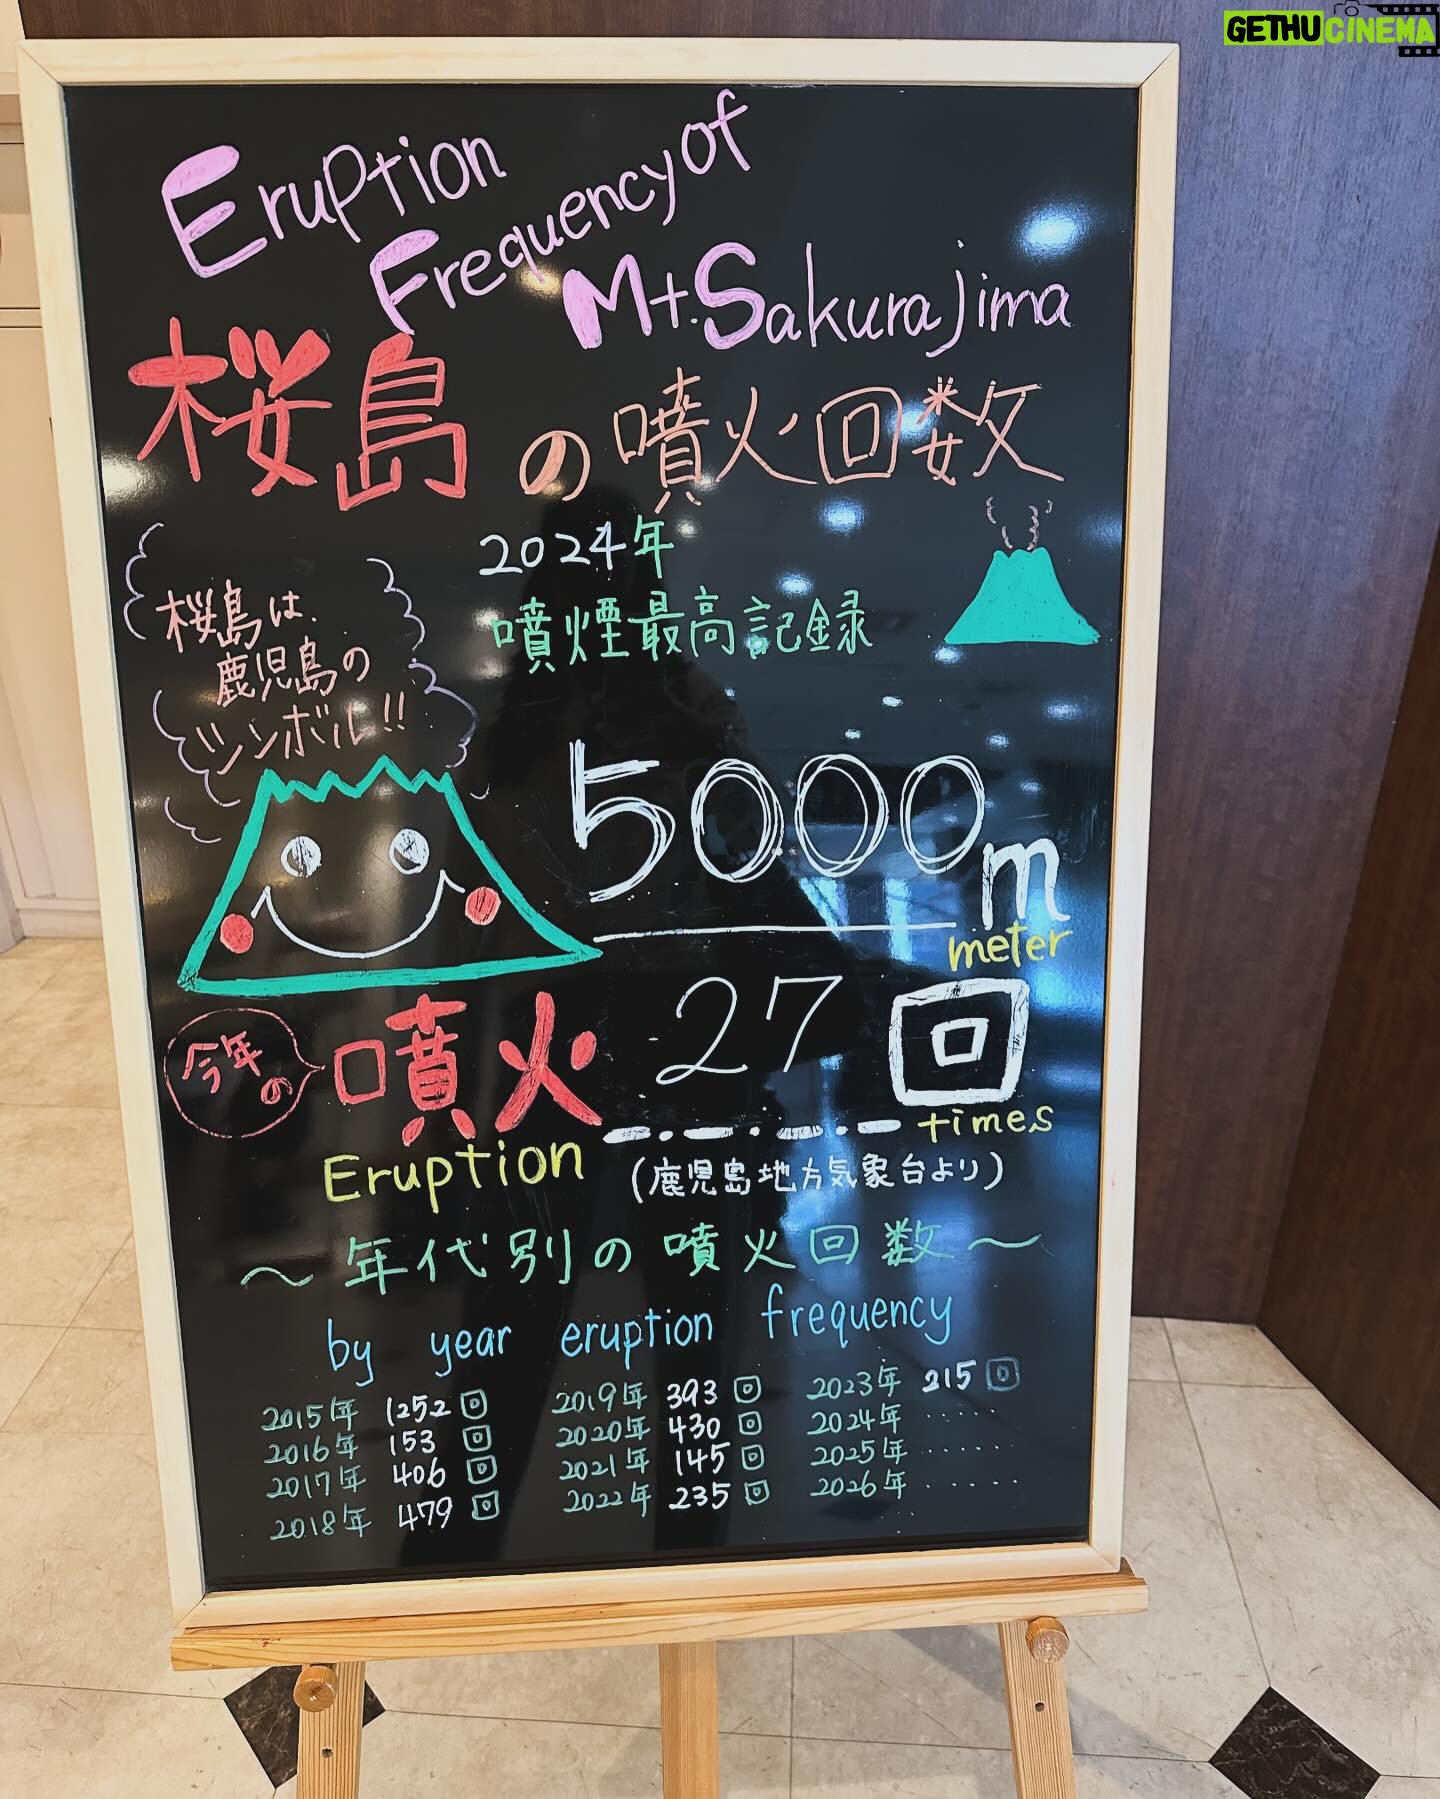 GETHUCINEMA
Eruption
Frequency of
Mt. Sakurajima
桜島の噴火回数
2024年
噴煙最高記録
桜島は
鹿児島の
シンボル!!
5000m
meter
今年の
噴火 27回
Eruption times
(鹿児島地方気象台より)
～年代別の噴火回数～
by year eruption frequency
2015年 1252回 2019年 393回 2023年 215回
2016年 153回 2020年 430回 2024年 ・・・・・
2017年 406回 2021年 145回 2025年 ・・・・・・
2018年 479回 2022年 235回 2026年 ・・・・・・